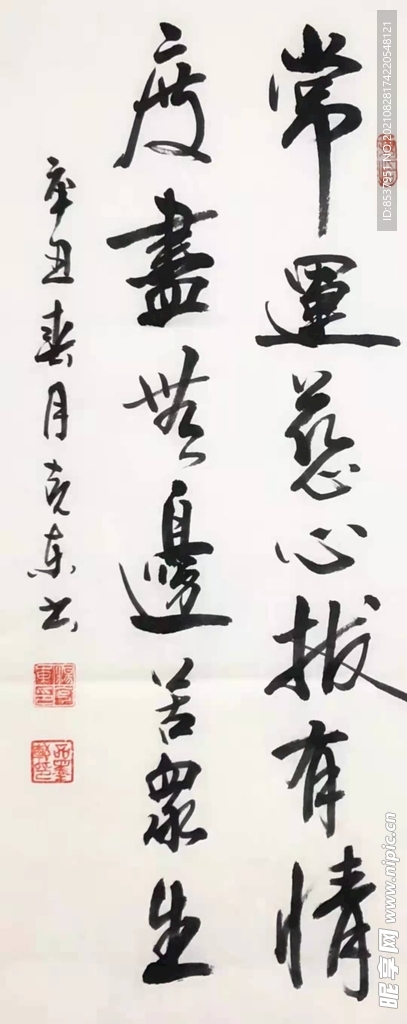 常運慈心拔有情
度盡無邊苦衆生
辛丑春月克東书
ID:8537951 NO:20210828174220548121
昵享网 www.nipic.cn